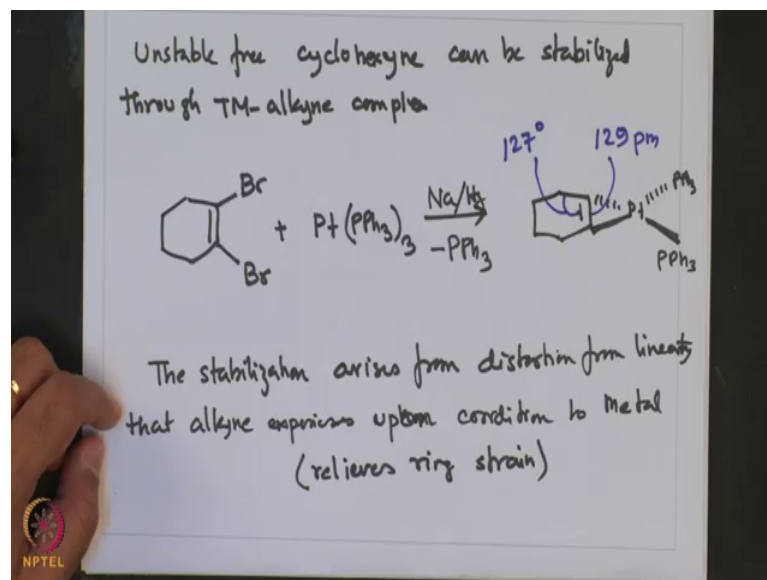 Unstable free cyclohexyne can be stabilized
through TM-alkyne complex
127° 129 pm
Br
+ Pt(PPh3)3 Na/Hg Pt PPh3
-PPh3
Br PPh3
The stabilization arises from distortion from linearity
that alkyne experiences upon condition to metal
(relieves ring strain)
NPTEL